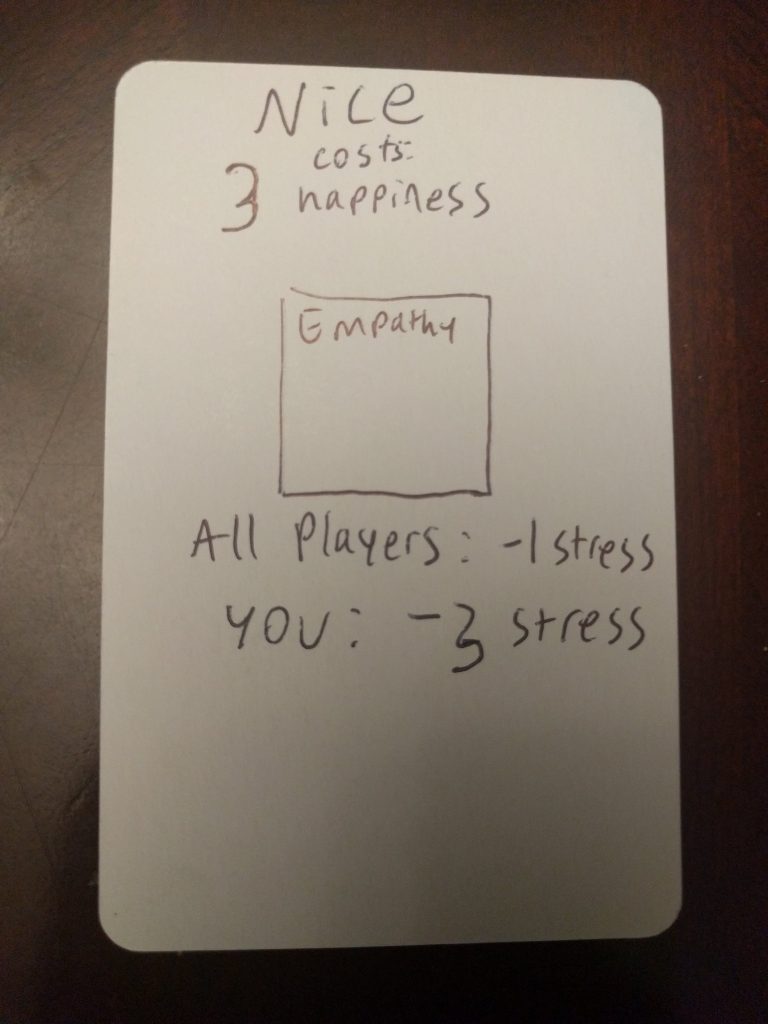 Nice
costs:
3 happiness
Empathy
All Players: -1 stress
YOU: -3 stress